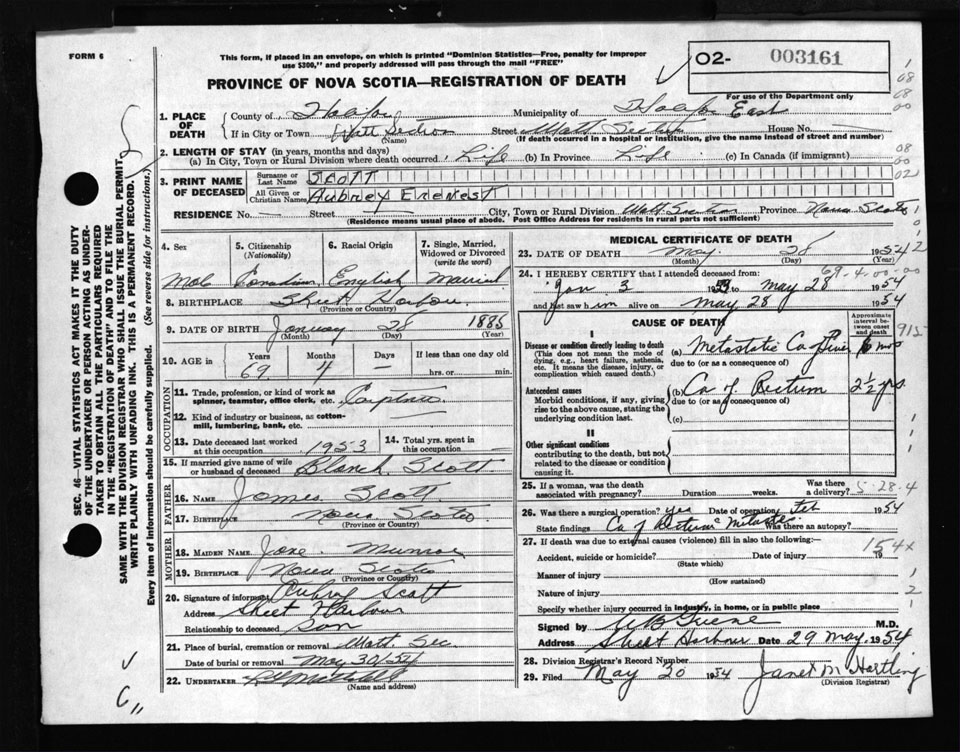 FORM 6
This form, if placed in an envelope, on which is printed "Dominion Statistics—Free, penalty for improper
use $300," and properly addressed will pass through the mail "FREE"
PROVINCE OF NOVA SCOTIA—REGISTRATION OF DEATH
02- 003161
For use of the Department only
1. PLACE OF DEATH
County of Halifax Municipality of Halifax East
If in City or Town Watt Section Street Watt Section House No. —
(Name) (If death occurred in a hospital or institution, give the name instead of street and number)
2. LENGTH OF STAY (in years, months and days)
(a) In City, Town or Rural Division where death occurred Life (b) In Province Life (c) In Canada (if immigrant)
3. PRINT NAME OF DECEASED
Surname or Last Name SCOTT
All Given or Christian Names Aubrey Ernest
RESIDENCE No. — Street — City, Town or Rural Division Watt Section Province Nova Scotia
(Residence means usual place of abode. Post Office Address for residents in rural parts not sufficient)
4. Sex Male
5. Citizenship (Nationality) Canadian
6. Racial Origin English
7. Single, Married, Widowed or Divorced (write the word) Married
8. BIRTHPLACE Sheet Harbour
(Province or Country)
9. DATE OF BIRTH January 28 1885
(Month) (Day) (Year)
10. AGE in Years Months Days If less than one day old
69 4 — hrs. or min.
OCCUPATION
11. Trade, profession, or kind of work as spinner, teamster, office clerk, etc. Carpenter
12. Kind of industry or business, as cotton-mill, lumbering, bank, etc.
13. Date deceased last worked at this occupation 1953
14. Total yrs. spent in this occupation
15. If married give name of wife or husband of deceased Blanch Scott
FATHER
16. NAME James Scott
17. BIRTHPLACE Nova Scotia
(Province or Country)
MOTHER
18. MAIDEN NAME Jane Munroe
19. BIRTHPLACE Nova Scotia
(Province or Country)
20. Signature of informant Aubrey Scott
Address Sheet Harbour
Relationship to deceased Son
21. Place of burial, cremation or removal Watt Sec
Date of burial or removal May 30/54
22. UNDERTAKER
(Name and address)
MEDICAL CERTIFICATE OF DEATH
23. DATE OF DEATH May 28 1954
(Month) (Day) (Year)
24. I HEREBY CERTIFY that I attended deceased from:
69-4-00-00
Jan 3 19 to May 28 1954
and last saw him alive on May 28 1954
CAUSE OF DEATH
Approximate interval between onset and death
I
Disease or condition directly leading to death
(This does not mean the mode of dying, e.g., heart failure, asthenia, etc. It means the disease, injury, or complication which caused death.)
(a) Metastatic Ca of Liver 6 mos
due to (or as a consequence of)
Antecedent causes
Morbid conditions, if any, giving rise to the above cause, stating the underlying condition last.
(b) Ca of Rectum 2½ yrs.
due to (or as a consequence of)
(c)
II
Other significant conditions
contributing to the death, but not related to the disease or condition causing it.
25. If a woman, was the death associated with pregnancy? Duration weeks. Was there a delivery?
5-28-4
26. Was there surgical operation? yes Date of operation Feb 1954
State findings Ca of Rectum Metastases Was there an autopsy?
27. If death was due to external causes (violence) fill in also the following:—
154x
Accident, suicide or homicide? Date of injury 19
(State which)
Manner of injury
(How sustained)
Nature of injury
Specify whether injury occurred in industry, in home, or in public place
Signed by M.D.
Address Sheet Harbour Date 29 May 1954
28. Division Registrar's Record Number
29. Filed May 20 1954 Janet M Hartling
(Division Registrar)
SEC. 46—VITAL STATISTICS ACT MAKES IT THE DUTY
OF THE UNDERTAKER OR PERSON ACTING AS UNDER-
TAKER TO OBTAIN ALL THE PARTICULARS REQUIRED
IN THE "REGISTRATION OF DEATH" AND TO FILE THE
SAME WITH THE DIVISION REGISTRAR WHO SHALL ISSUE THE BURIAL PERMIT.
WRITE PLAINLY WITH UNFADING INK. THIS IS A PERMANENT RECORD.
Every item of information should be carefully supplied. (See reverse side for instructions.)